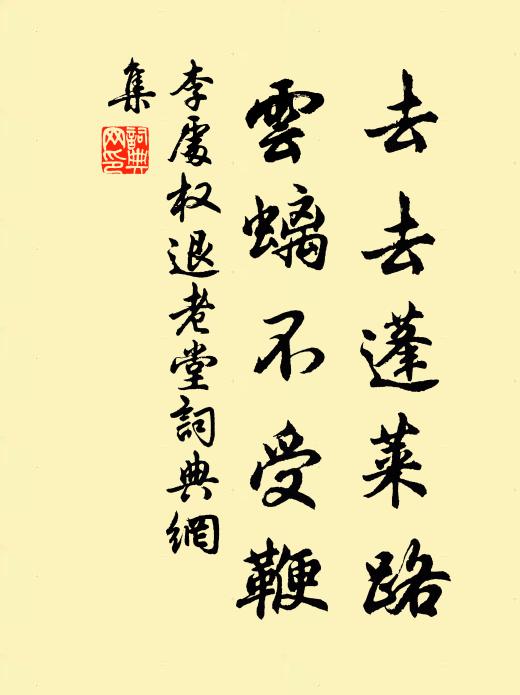 去去蓬萊路
雲螭不受鞭
李處权退老堂詞典網
集
詞典網印